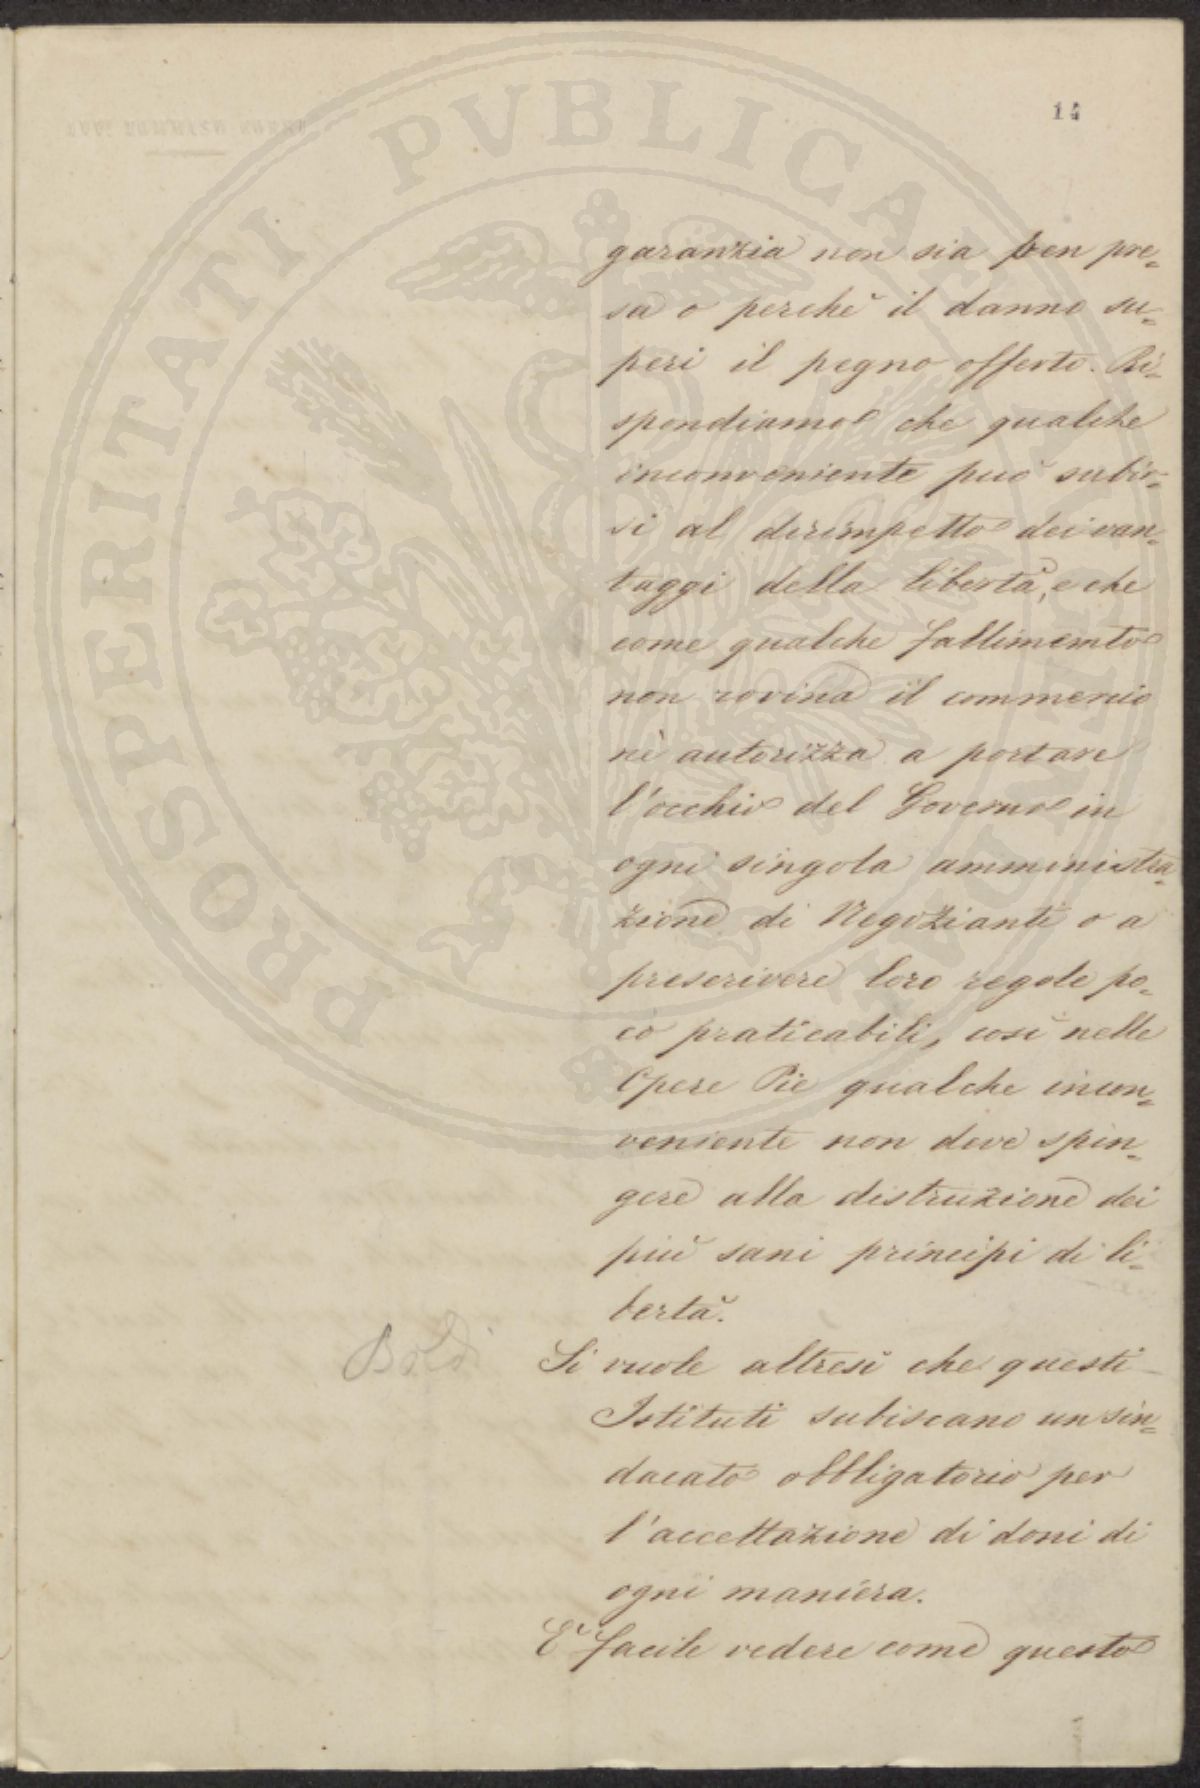 14
garanzia non sia ben pre=
sa o perchè il danno su=
peri il pegno offerto. Ri=
spondiamo che qualche
inconveniente può subir=
si al dirimpetto dei van=
taggi della libertà, e che
come qualche fallimento
non rovina il commercio
nè autorizza a portare
l'occhio del Governo in
ogni singola amministra=
zione di Negozianti o a
prescrivere loro regole po=
co praticabili, così nelle
Opere Pie qualche incon=
veniente non deve spin=
gere alla distruzione dei
più sani principi di li=
bertà.
Si vuole altresì che questi
Istituti subiscano un sin=
dacato obbligatorio per
l'accettazione di doni di
ogni maniera.
E' facile vedere come questo
PROSPERITATI PVBLICAE